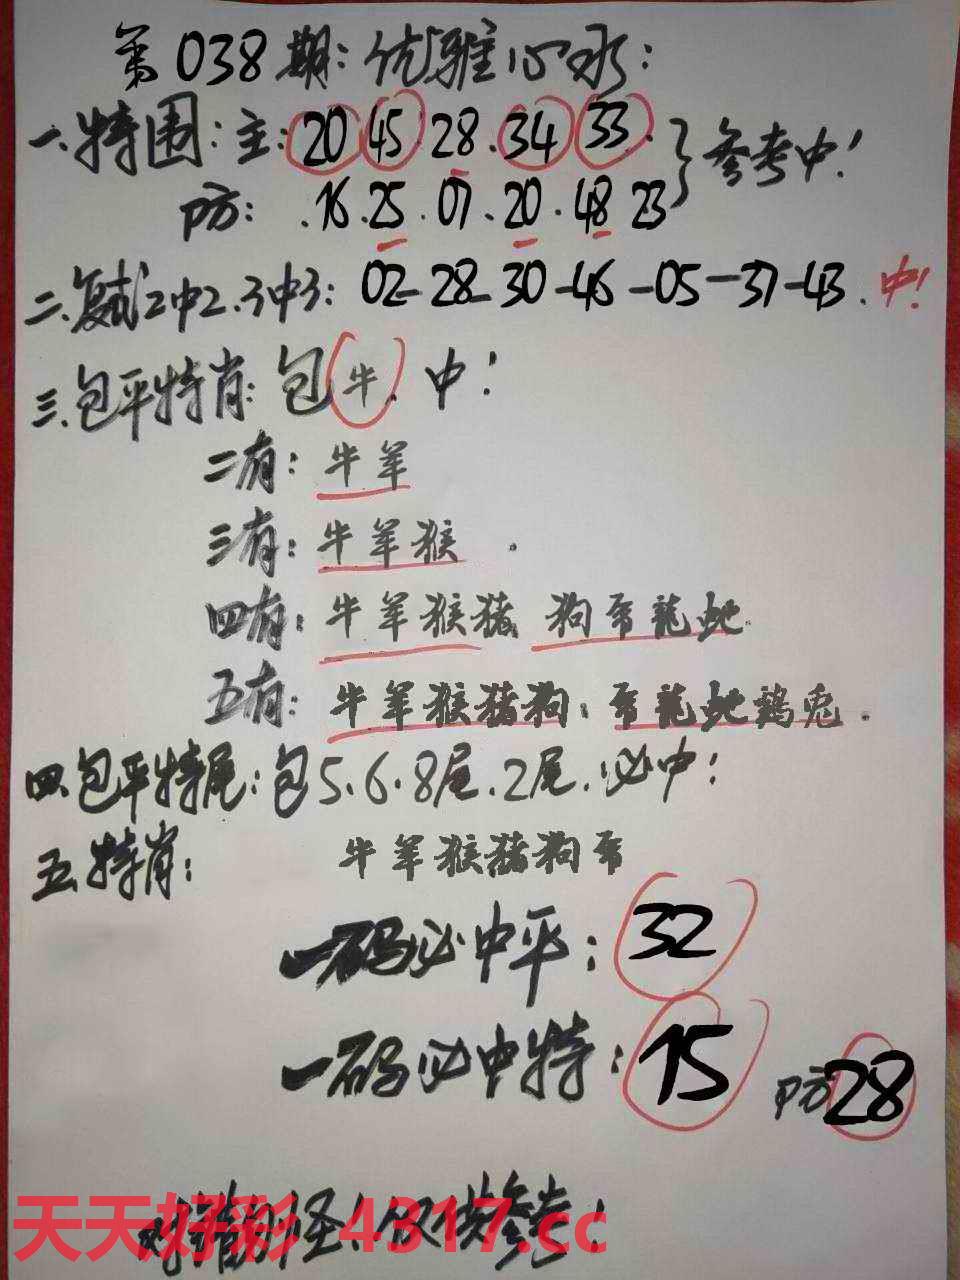 第038期:优雅心水:
一.特围:主:20 45 28.34 33.
参考中!
防:.16.25.07.20.48 23
二.复试2中2.3中3:02-28-30-46-05-37-43.中!
三.包平特肖:包牛.中!
二有:牛羊
三有:牛羊猴.
四有:牛羊猴猪 狗帋龍蛇
五有:牛羊猴猪狗 帋龍蛇鷄兎.
四.包平特尾:包5.6.8尾.2尾.必中!
五特肖:牛羊猴猪狗帋
一码必中平:32
一码必中特:15 防28
对错别怪!仅供参考!
天天好彩 4317.cc